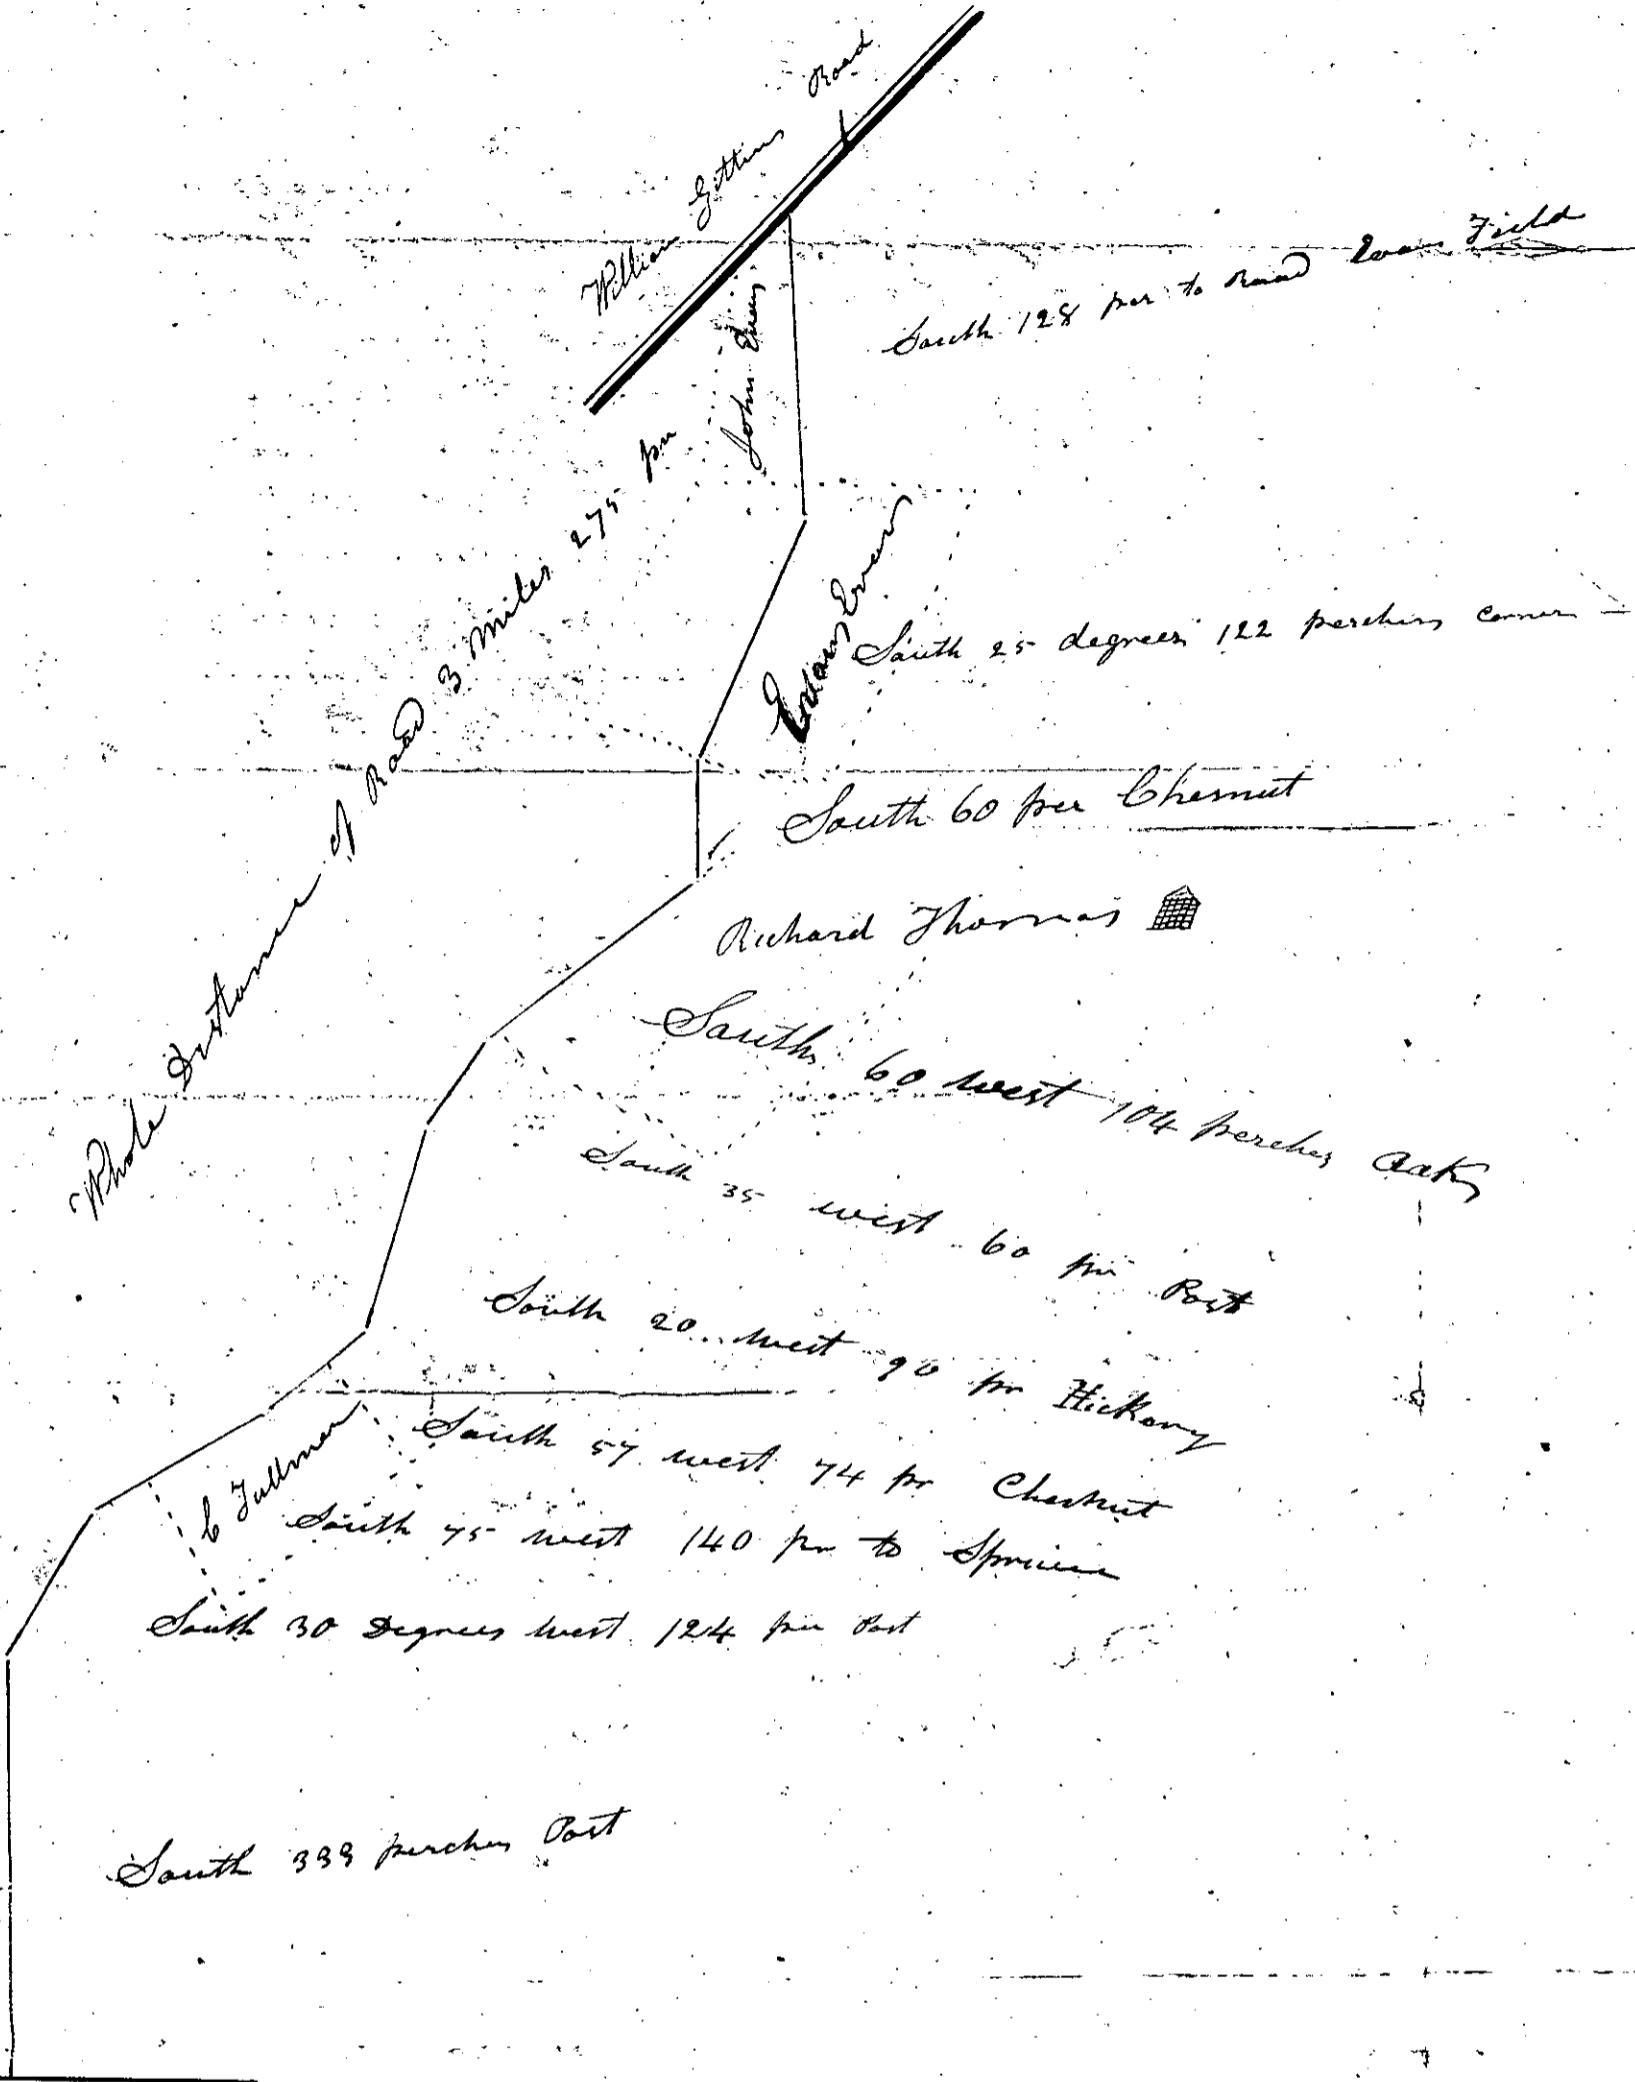 William Gittins Road
John Evans
South 128 per to Road Evans Field
Whole Distance of Road 3 miles 275 per
Evans
South 25 degrees 122 perches corner
South 60 per Chesnut
Richard Thomas
South 60 west 104 perches Oak
South 35 west 60 per Post
South 20 west 90 pr Hickory
South 57 west 74 pr Chesnut
C Tullman
South 75 west 140 pr to Spruce
South 30 Degrees West 124 per Post
South 333 perches Post